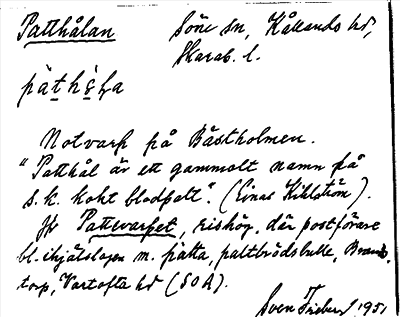 Patthålan Söne sn, Kållands hd,
Skarab. l.
Notvarp på Båstholmen.
"Patthål är ett gammalt namn på
s.k. kokt blodpatt". (Einar Kihlström).
Jfr Pattvarpet, rishög, där postförare
bl. ihjälslagen m. patta, paltbrödsbulle, Brands-
torp, Vartofta hd (SOA).
Sven 1951